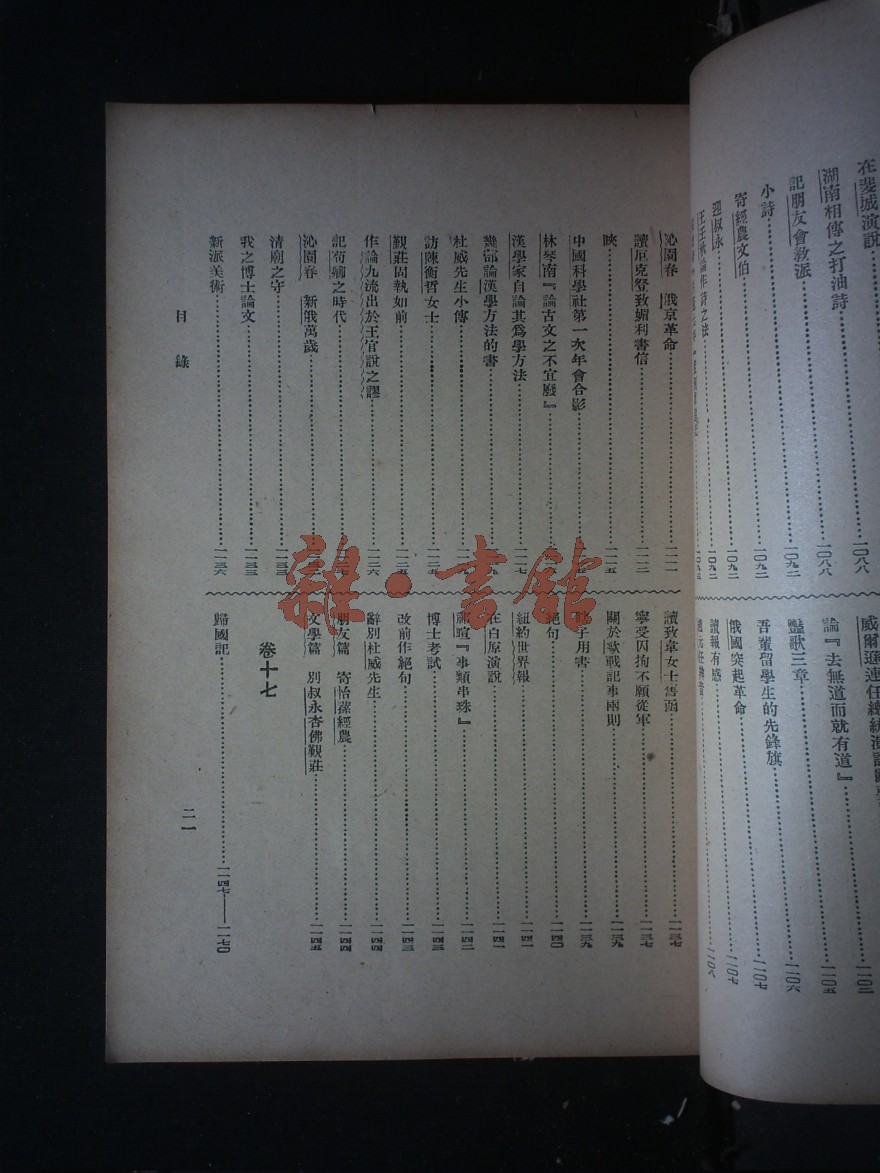 在斐城演說……一〇八八
湖南相傳之打油詩……一〇八八
記朋友會教派
小詩……一〇九二
寄經農文伯……一〇九二
迎叔永……一〇九二
王壬秋論作詩之法
威爾遜連任總統演說
論『去無道而就有道』……一一〇五
豔歌三章……一一〇六
吾輩留學生的先鋒旗……一一〇七
俄國突起革命……一一〇七
讀報有感……一一〇八
趙元任辨音
沁園春 俄京革命……一一一一
讀厄克登致媚利書信……一一一二
映……一一一五
中國科學社第一次年會合影
林琴南『論古文之不宜廢』
漢學家自論其爲學方法……一一一七
幾部論漢學方法的書
杜威先生小傳
訪陳衡哲女士……一一二五
覲莊固執如前……一一二五
作論九流出於王官說之謬……一一二六
記荀卿之時代
沁園春 新俄萬歲
清廟之守……一一三三
我之博士論文……一一三三
新派美術……一一三六
讀致韋女士舊函……一一三七
寧受囚拘不願從軍……一一三七
關於歐戰記事兩則……一一三九
子用書……一一三九
絕句……一一四〇
紐約世界報……一一四一
在白原演說……一一四一
祁暄『事類串珠』……一一四二
博士考試……一一四三
改前作絕句……一一四三
辭別杜威先生……一一四四
朋友篇 寄怡蓀經農……一一四四
文學篇 別叔永杏佛覲莊……一一四五
卷十七
歸國記……一一四七——一一七〇
目錄
二一
雜·書館